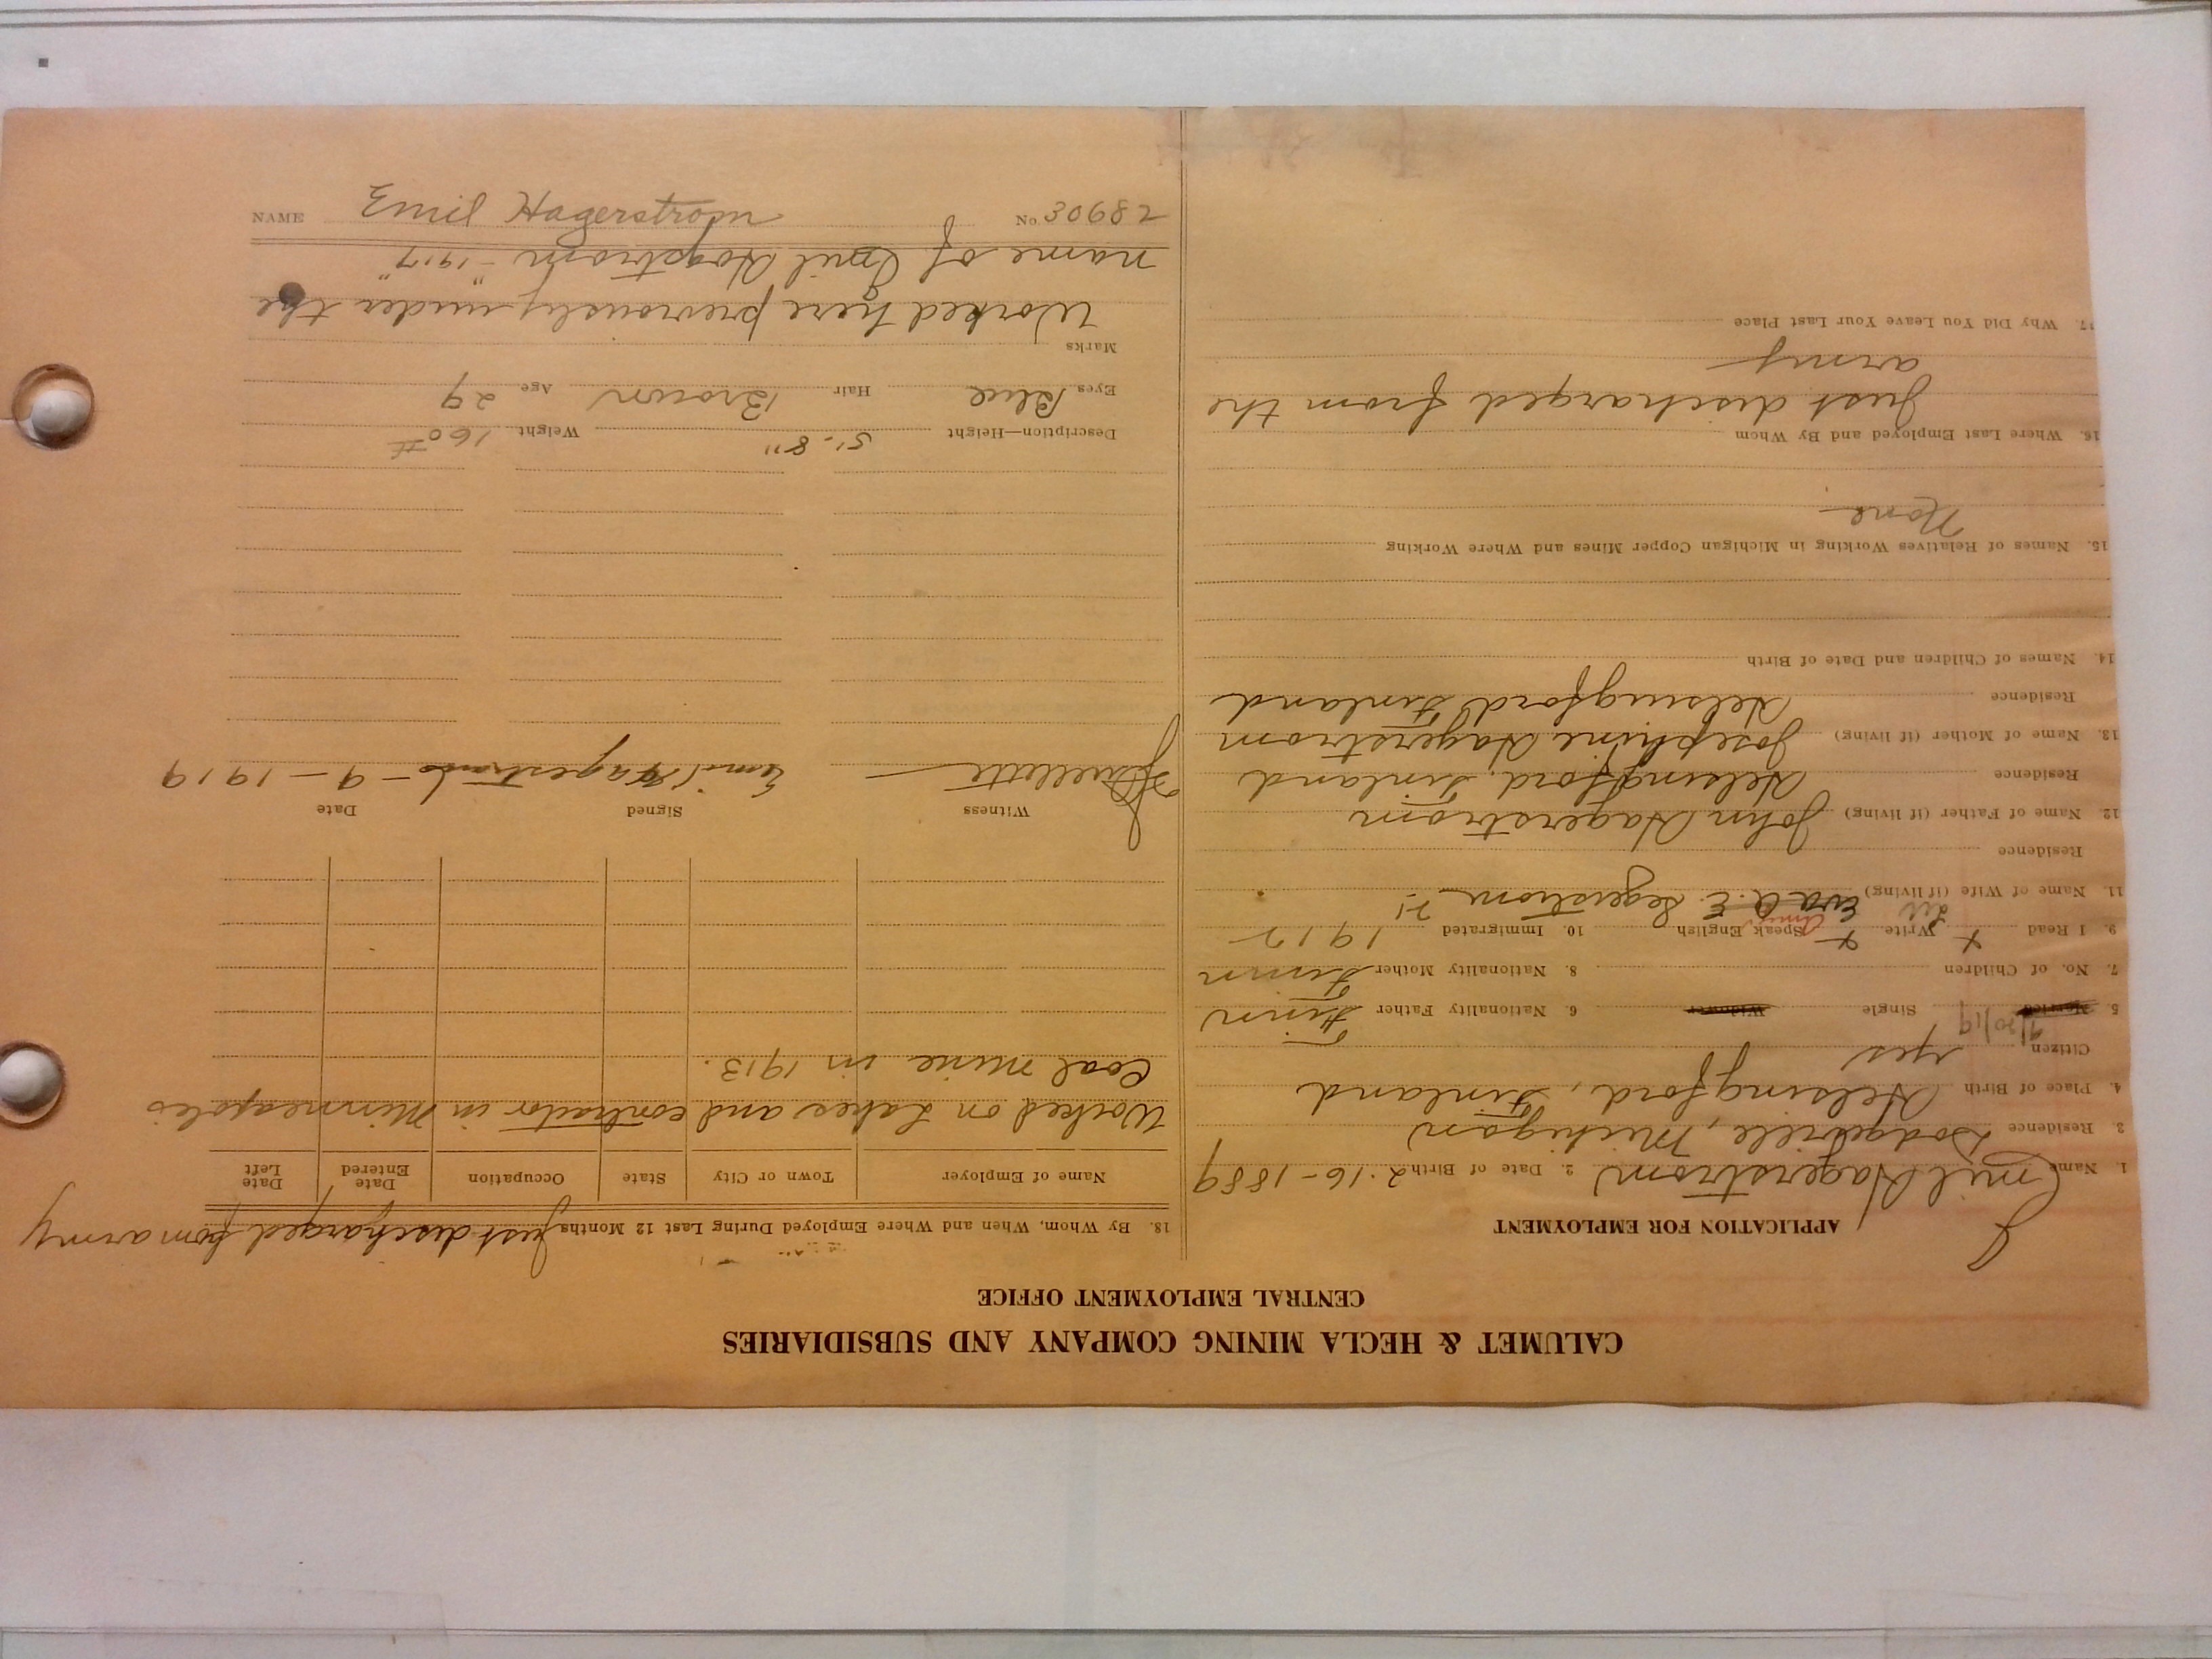 CALUMET & HECLA MINING COMPANY AND SUBSIDIARIES
CENTRAL EMPLOYMENT OFFICE
APPLICATION FOR EMPLOYMENT
1. Name Emil Hagerstrom 2. Date of Birth 2-16-1889
3. Residence Dodgeville, Michigan
4. Place of Birth Helsingford, Finland
Citizen yes
9/30/19
5. Married Single Widower 6. Nationality Father Finn
7. No. of Children 8. Nationality Mother Finn
9. I Read x Write x Speak English 10. Immigrated 1912
11. Name of Wife (if living) Eva A. E. Segerstrom
Residence
12. Name of Father (if living) John Hagerstrom
Residence Helsingford, Finland
13. Name of Mother (if living) Josephine Hagerstrom
Residence Helsingford Finland
14. Names of Children and Date of Birth
15. Names of Relatives Working in Michigan Copper Mines and Where Working
None
16. Where Last Employed and By Whom
Just discharged from the
army
17. Why Did You Leave Your Last Place
18. By Whom, When and Where Employed During Last 12 Months Just discharged from army
Name of Employer Town or City State Occupation Date Entered Date Left
Worked on Lakes and contractor in Minneapolis
Coal mine in 1913.
Witness Signed Date
Ouellette Emil Hagestrom 6-9-1919
Description—Height 5'-8" Weight 160#
Eyes Blue Hair Brown Age 29
Marks
Worked here previously under the
name of Emil Hogstrom - "1917"
No. 28903
NAME Emil Hagerstrom